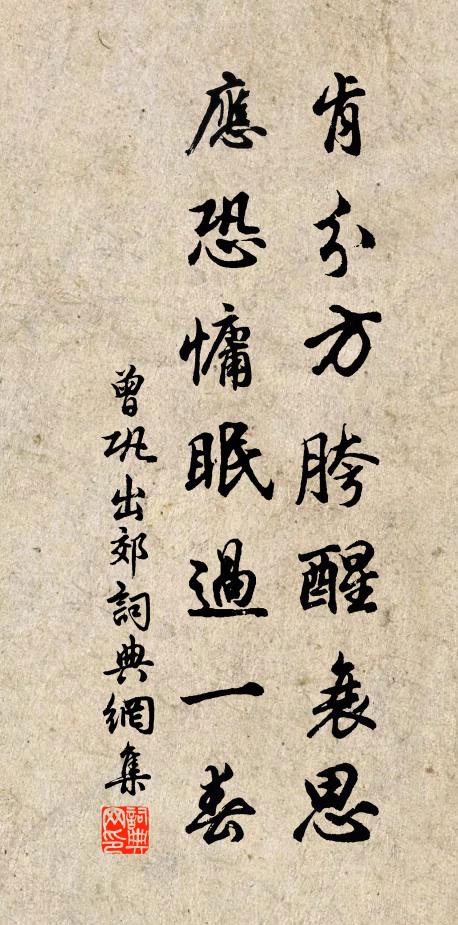 肯分方胯醒衰思
應恐慵眠過一春
曾巩出郊詞典網集
詞典網印